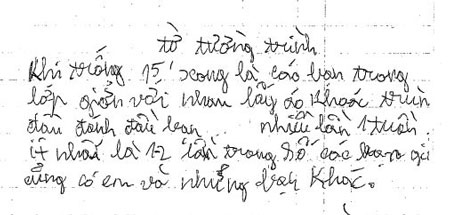 tờ tường trình
Khi trống 15' xong là các bạn trong
lớp giỡn với nhau lấy áo khoác trùm
đầu đánh đầu bạn nhiều lần 1 tuần.
ít nhất là 1-2 lần trong số các bạn
cũng có em và những bạn khác.